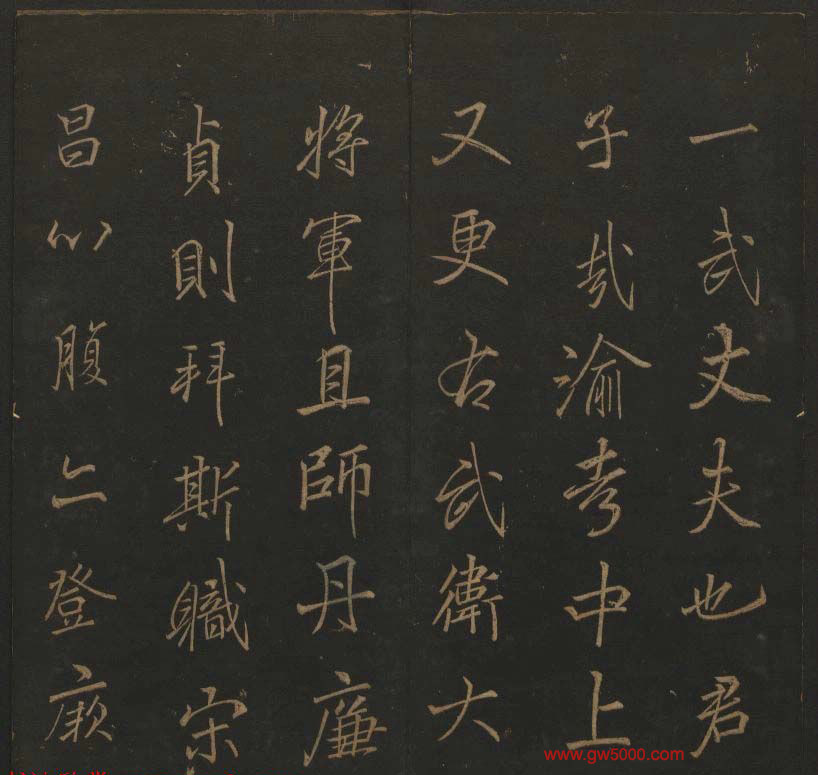 一武丈夫也君
子哉渝考中上
又更右武衛大
將軍且師丹廉
貞則拜斯職宋
昌以腹亦登厥
www.gw5000.com